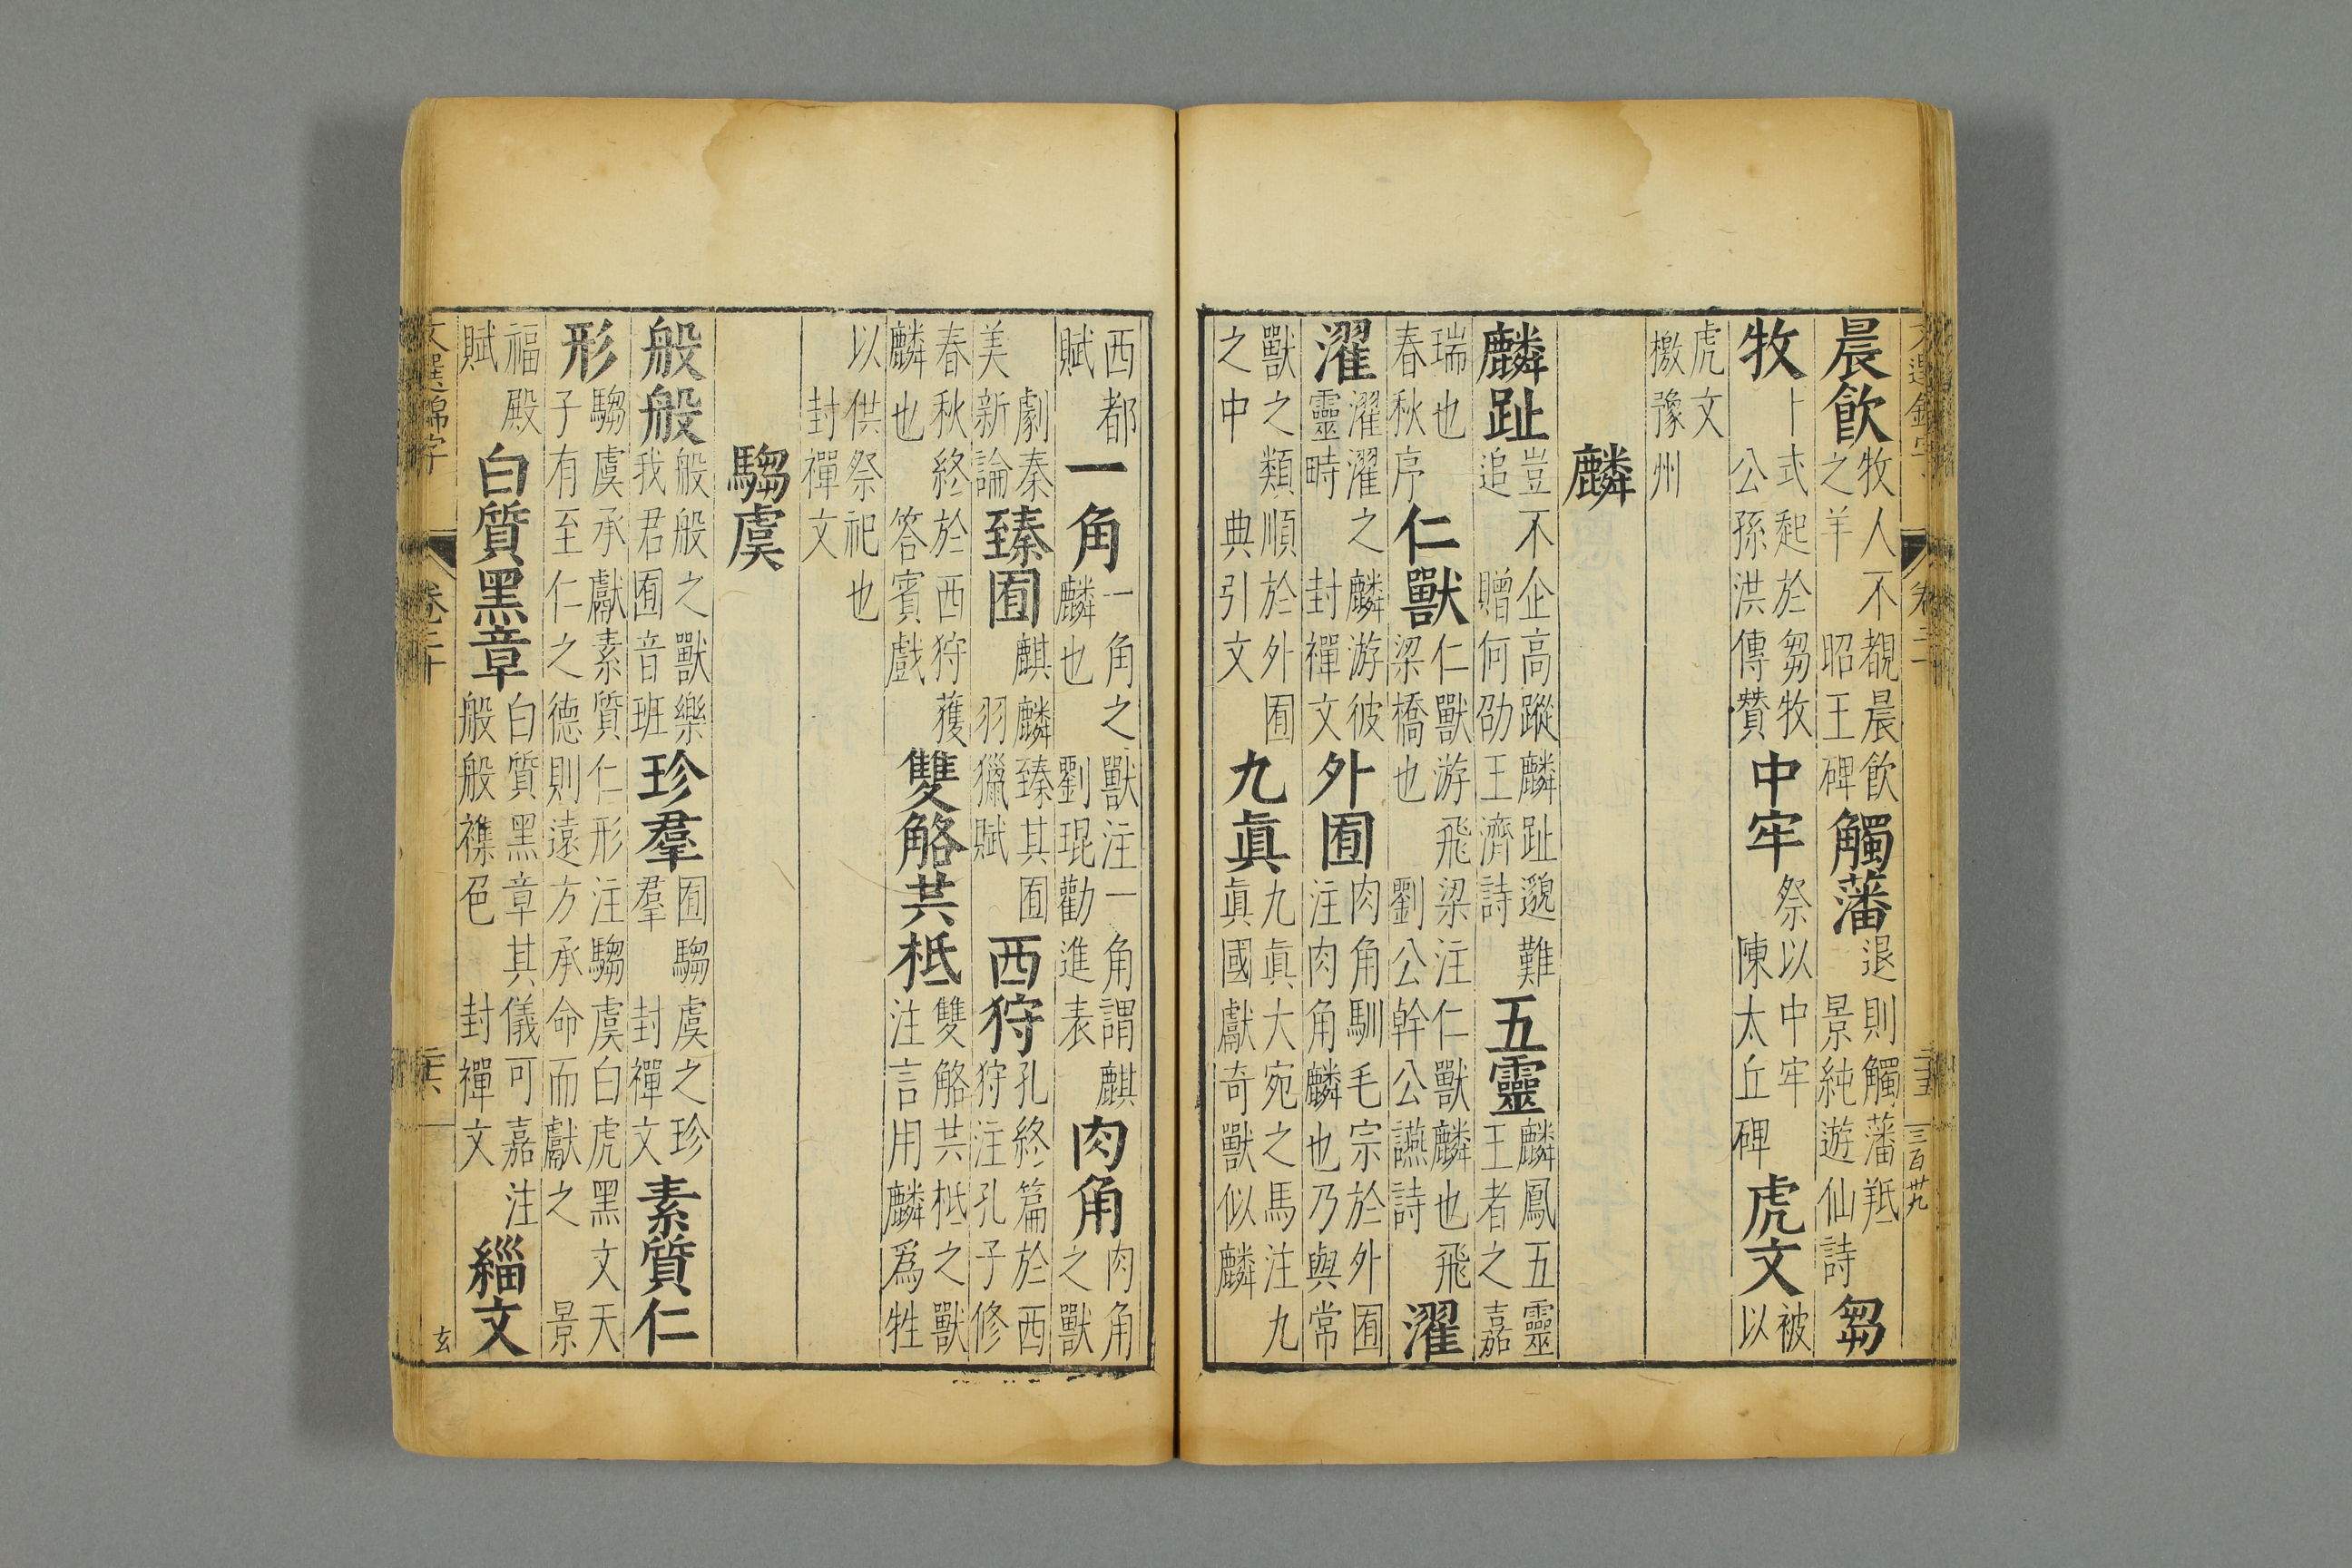 晨飲牧人不覩晨飲之羊昭王碑觸藩退則觸藩羝景純遊仙詩芻
牧卜式起於芻牧公孫洪傳贊中牢祭以中牢陳太丘碑虎文被以
虎文檄豫州
麟
麟趾豈不企高蹤麟趾邈難追贈何劭王濟詩五靈麟鳳五靈王者之嘉
瑞也春秋序仁獸仁獸游飛梁注仁獸麟也飛梁橋也劉公幹公讌詩濯
濯濯濯之麟游彼靈畤封禪文外囿肉角馴毛宗於外囿注肉角麟也乃與常
獸之類順於外囿之中典引文九眞九眞大宛之馬注九眞國獻奇獸似麟
西都賦一角一角之獸注一角謂麒麟也劉琨勸進表肉角肉角之獸
劇秦美新論臻囿麒麟臻其囿羽獵賦西狩孔終篇於西狩注孔子修
春秋終於西狩獲麟也答賓戲雙觡共柢雙觡共柢之獸注言用麟爲牲
以供祭祀也封禪文
騶虞
般般般般之獸樂我君囿音班珍羣囿騶虞之珍羣封禪文素質仁
形騶虞承獻素質仁形注騶虞白虎黑文天子有至仁之德則遠方承命而獻之景
福殿賦白質黑章白質黑章其儀可嘉注般般襍色封禪文緇文
文選錦字
卷二十
二十六
玄
三百廿九